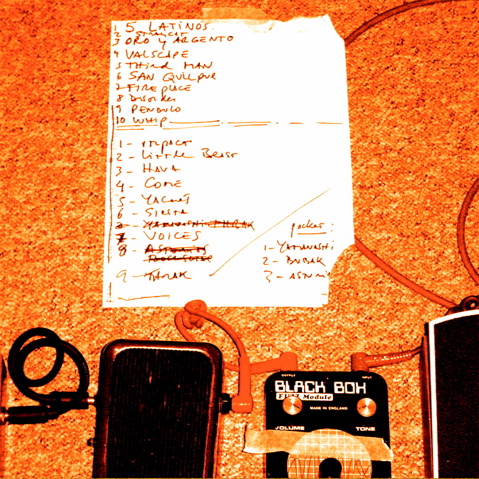 1 5 LATINOS.
2 Stinger
3 ORO y ARGENTO
4 VALSCAPE
5 THIRD MAN
6 SAN QUILPUE
7 FIREPLACE
8 Disorder
9 PENDULO
10 WHIP
1 - IMPACT
2 - Little Beast
3 - HAVA
4 - COME
5 - YACHT
6 - SIESTA
7 - VOICES
8
9 - TARAK
pocket:
1 - YAMANASHI
2 - BUBAK
3 -
OUTPUT
INPUT
BLACK BOX
FUZZ Module
MADE IN ENGLAND
VOLUME
TONE